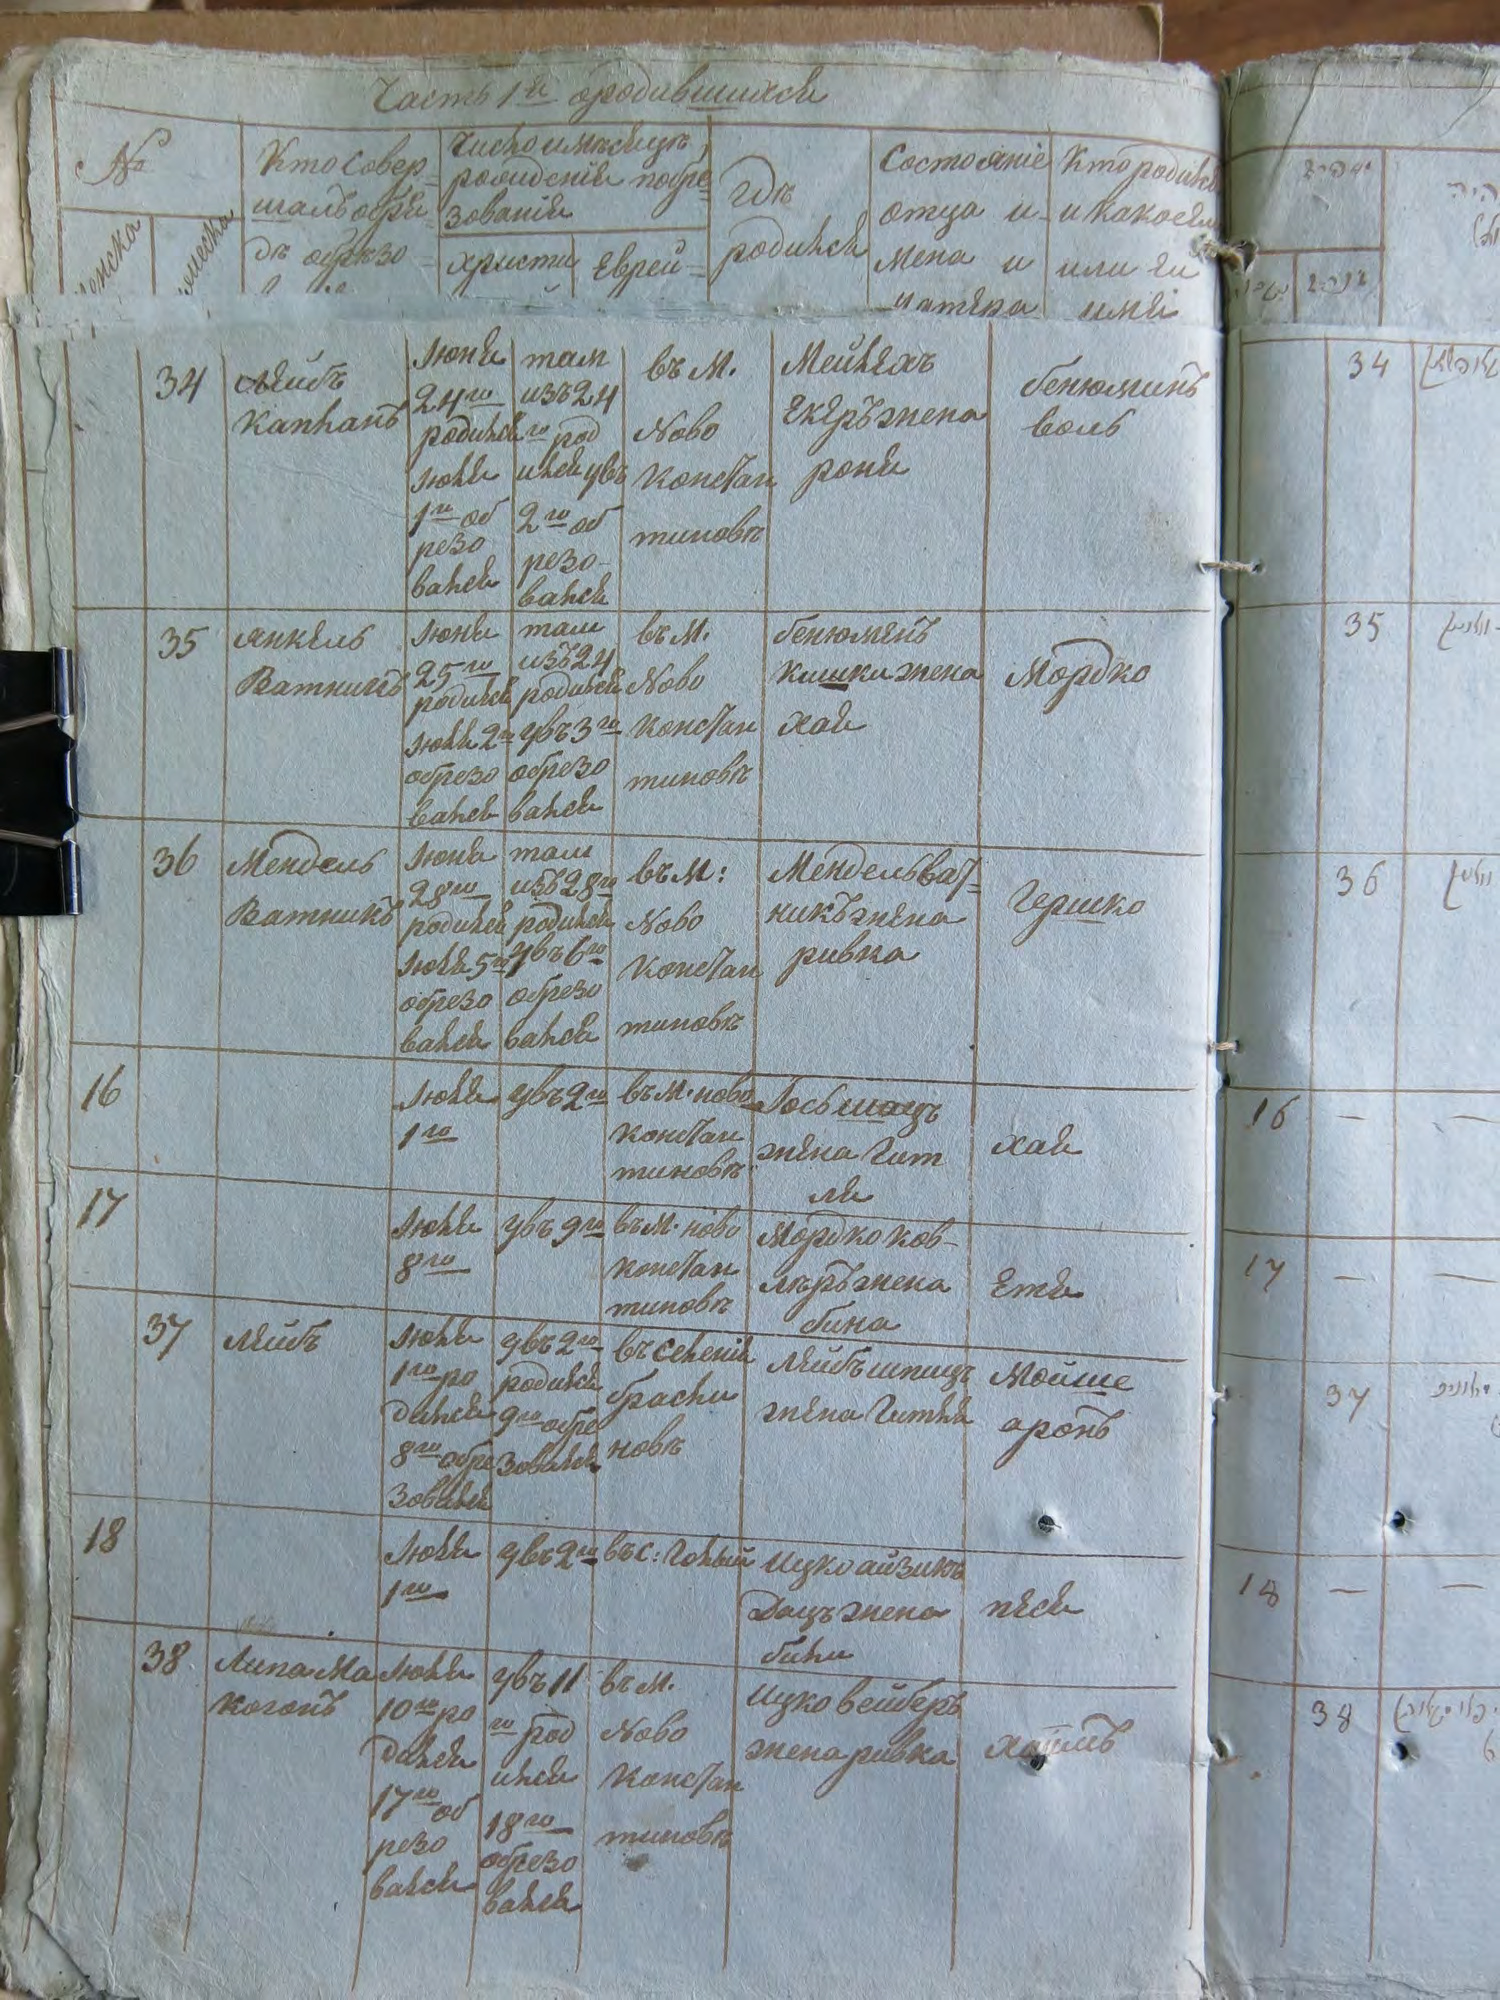 Часть 1й о родившихся
№
женска
мужеска
Кто совер-
шалъ обря-
дъ обрезо-
Число и мѣсяцъ
рождения и обре-
зования
христи
Еврей-
гдѣ
родился
Состояние
отца и-
мена и
матера
Кто родился
и какое ему
или ей
имя
34
Лейбъ
Капланъ
Июня
24го
родился
Июля
1го об
резо
вался
там
изъ 24
го род
ился увъ
2го об
резо-
вался
въ М.
Ново
Констан
тиновѣ
Мейлехъ
Екеръ жена
роня
бенюминъ
воль
35
Янкель
Ватникъ
Июня
25го
родился
Июля 2го
обрезо
вался
там
изъ 24
родился
увъ 3го
обрезо
вался
въ М.
Ново
Констан
тиновѣ
бенюменъ
Кишки жена
хая
Мордко
36
Мендель
Ватникъ
Июня
28го
родился
Июля 5го
обрезо
вался
там
изъ 28го
родился
увъ 6го
обрезо
вался
въ М:
Ново
Констан
тиновѣ
Мендель Ват-
никъ жена
ривка
Гершко
16
Июля
1го
увъ 2го
въ М. ново
констан
тиновѣ
Іось шацъ
жена Гит
ля
хая
17
Июля
8го
увъ 9го
въ М. ново
констан
тиновѣ
Мордко ков-
лѣръ жена
бина
Етя
37
Лейбъ
Июля
1го ро
дился
8го обре
зовался
увъ 2го
родился
9го обре
зовался
въ селении
браси
новѣ
Лейбъ шпицъ
жена Гитля
Мойше
аронъ
18
Июля
1го
увъ 2го
въ с: Голый
Ицко айзикъ
Дацъ жена
бина
песя
38
Липа Ма
когонъ
Июля
10го ро
дился
17го об
резо
вался
увъ 11
го род
ился
18го
обрезо
вался
въ М.
Ново
Констан
тиновѣ
Ицко вейберъ
жена ривка
хаимъ
34
35
36
16
—
—
17
—
—
37
18
—
—
38